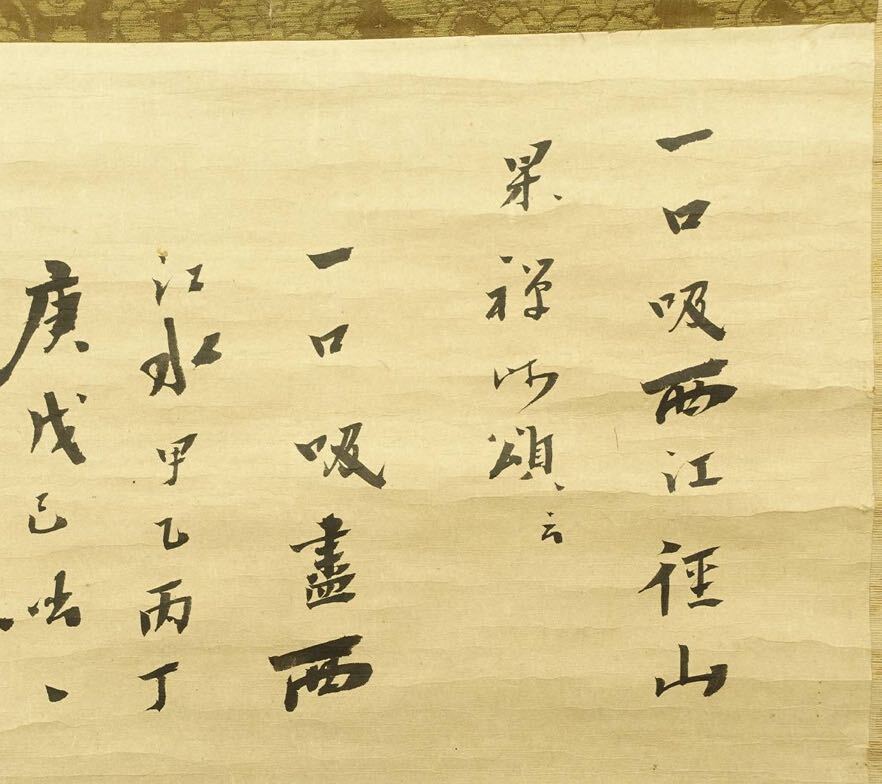 一口吸西江徑山
杲禅師頌云
一口吸盡西
江水甲乙丙丁
庚戊己咄、